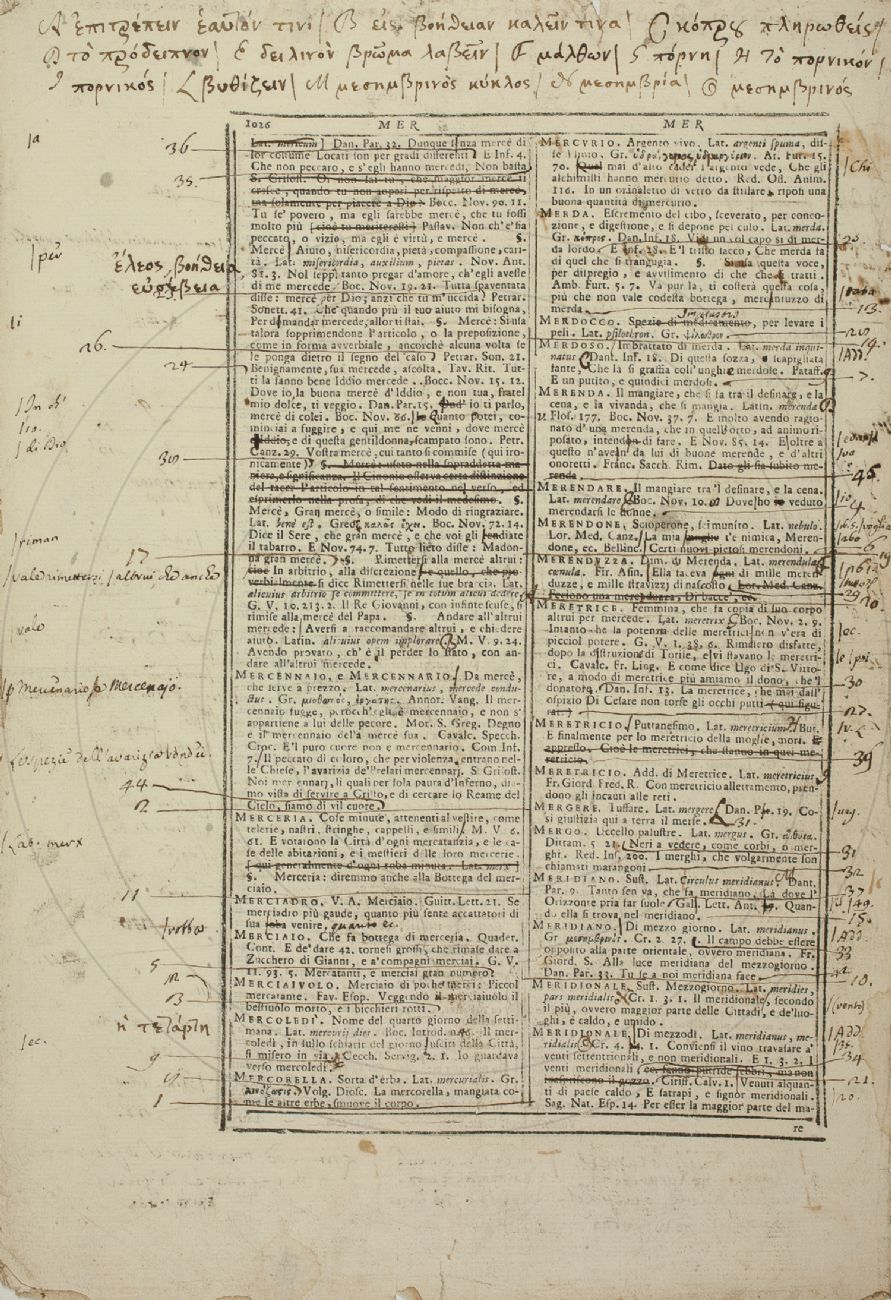 A ἐπιτρέπειν ἑαυτόν τινι / B εἰς βοήθειαν καλεῖν τινα / C κόπρου πληρωθείς /
D τὸ πρόδειπνον / E δειλινὸν βρῶμα λαβεῖν / F μάλθων / G πόρνη / H τὸ πορνικόν /
I πορνικός / L βυθίζειν / M μεσημβρινὸς κύκλος / N μεσημβρία / O μεσημβρινός
1026 MER MER
Dan. Par. 32. Dunque senza mercè di
lor costume Locati son per gradi differenti. E Inf. 4.
Che non peccaro, e s'egli hanno mercedi, Non basta
S. Grisost. O non sai tu, che maggior mercè ti
cresce, quando tu non aopéri per rispetto di mercè,
ma solamente per piacere a Dio? Bocc. Nov. 90. 11.
Tu se' povero, ma egli sarebbe mercè, che tu fossi
molto più (cioè tu meriteresti) Passav. Non ch'e' sia
peccato, o vizio, ma egli è virtù, e mercè. §.
Mercè. Aiuto, misericordia, pietà, compassione, cari-
tà. Lat. misericordia, auxilium, pietas. Nov. Ant.
di me mercede. Bocc. Nov. 19. 21. Tutta spaventata
disse: mercè per Dio; anzi che tu m'uccida? Petrar.
Sonett. 41. Che quando più il tuo aiuto mi bisogna,
Per dimandar mercede, allor ti stai. §. Mercè: Si usa
talora sopprimendone l'articolo, o la preposizione,
come in forma avverbiale, ancorchè alcuna volta se
le ponga dietro il segno del caso. Petrar. Son. 21.
Benignamente, sua mercede, ascolta. Tav. Rit. Tut-
ti la fanno bene Iddio mercede. Bocc. Nov. 15. 12.
Dove io, la buona mercè d'Iddio, e non tua, fratel
mio dolce, ti veggio. Dan. Par. 15. Ond' io ti parlo,
mercè di colei. Bocc. Nov. 86. Quanto potei, co-
minciai a fuggire, e qui me ne venni, dove mercè
d'Iddio, e di questa gentildonna, scampato sono. Petr.
Canz. 29. Vostra mercè, cui tanto si commise (qui iro-
nicamente) §. Mercè: usato nella sopraddetta ma-
niera, e significanza. Il Cinonio osserva certa distinzione
del tacer l'articolo in tal sentimento nel verso, ed
esprimerlo nella prosa, di che vedi il medesimo. §.
Mercè, Gran mercè, o simile: Modo di ringraziare.
Lat. bene est. Grec. καλῶς ἔχει. Bocc. Nov. 72. 14.
Dice il Sere, che gran mercè, e che voi gli rendiate
il tabarro. E Nov. 74. 7. Tutto lieto disse: Madon-
na gran mercè. §. Rimettersi alla mercè altrui:
cioè In arbitrio, alla discrezione, e quello, che pro-
verbialmente si dice Rimettersi nelle braccia. Lat.
alicuius arbitrio se committere, se in totum alicui dedere.
G. V. 10. 213. 2. Il Re Giovanni, con infinte scuse, si
rimise alla mercè del Papa. §. Andare all'altrui
mercede: Aversi a raccomandare altrui, e chiedere
aiuto. Latin. alicuius opem implorare. M. V. 9. 24.
Avendo provato, ch'è il perder lo stato, con an-
dare all'altrui mercede.
MERCENNAIO, e MERCENNARIO. Da mercè,
che serve a prezzo. Lat. mercenarius, mercede condu-
ctus. Gr. μισθωτὸς, ἐργάτης. Annot. Vang. Il mer-
cennaio fugge, perocch'egli è mercennaio, e non s'
appartiene a lui delle pecore. Mor. S. Greg. Degno
è il mercennaio della mercè sua. Cavalc. Specch.
Croc. E'l puro cuore non è mercennario. Com. Inf.
7. Il peccato di coloro, che per violenza entrano nel-
le Chiese, l'avarizia de' Prelati mercennarj. S. Grisost.
Noi mercennarj, li quali per sola paura d'inferno, dia-
mo vista di servire a Cristo, e di cercare lo Reame del
Cielo, siamo di vil cuore.
MERCERIA. Cose minute, attenenti al vestire, come
telerie, nastri, stringhe, cappelli, e simili. M. V. 6.
61. E votarono la Città d'ogni mercatanzia, e le ca-
se delle abitazioni, e i mestieri delle loro mercerie.
(qui generalmente d'ogni roba minuta. Lat. merx)
§. Merceria: diremmo anche alla Bottega del mer-
ciaio.
MERCIADRO. V. A. Merciaio. Guitt. Lett. 21. Se
merciadro più gaude, quanto più sente accattatori di
sua roba venire, quanto ec.
MERCIAIO. Che fa bottega di merceria. Quader.
Cont. E de' dare 42. tornesi grossi, che rimase dare a
Zucchero di Gianni, e a' compagni merciai. G. V.
11. 93. 5. Mercatanti, e merciai gran numero.
MERCIAIVOLO. Merciaio di poche merci: Piccol
mercatante. Fav. Esop. Veggendo il merciaiuolo il
bestiuolo morto, e i bicchieri rotti.
MERCOLEDÌ. Nome del quarto giorno della setti-
mana. Lat. mercurii dies. Boc. Introd. n. 46. Il mer-
coledì, in sullo schiarir del giorno, usciti della Città,
si misero in via. Cecch. Servig. 2. 1. Io guardava
verso mercoledì.
MERCORELLA. Sorta d'erba. Lat. mercurialis. Gr.
Volg. Diosc. La mercorella, mangiata co-
me le altre erbe, smuove il corpo.
MERCVRIO. Argento vivo. Lat. argenti spuma, dis-
se Plinio. Gr. ὑδράργυρος. Ar. Fur. 15.
70. Quel mai d'alto cader l'argento vede, Che gli
alchimisti hanno mercurio detto. Red. Oss. Anim.
116. In un orinaletto di vetro da stillare, riposi una
buona quantità di mercurio.
MERDA. Escremento del cibo, sceverato, per conco-
zione, e digestione, e si depone pel culo. Lat. merda.
Gr. κόπρος. Dan. Inf. 18. Vidi un col capo sì di mer-
da lordo. E Inf. 28. E'l tristo sacco, Che merda fa
di quel che si trangugia. Si usa questa voce,
per dispregio, e avvilimento di che che si tratti.
Amb. Furt. 5. 7. Va pur là, ti costerà questa cosa,
più che non vale codesta bottega, mercantuzzo di
merda.
MERDOCCO. Spezie di medicamento, per levare i
peli. Lat. psilothron. Gr. ψίλωθρον.
MERDOSO. Imbrattato di merda. Lat. merda inqui-
natus. Dant. Inf. 18. Di quella sozza, e scapigliata
fante, Che là si graffia coll'unghie merdose. Pataff.
E un putito, e quindici merdosi.
MERENDA. Il mangiare, che si fa tra il desinare, e la
cena, e la vivanda, che si mangia. Latin. merenda.
Flos. 177. Boc. Nov. 37. 7. E molto avendo ragio-
nato d'una merenda, che in quell'orto, ad animo ri-
posato, intendean di fare. E Nov. 85. 14. E oltre a
questo n'avean da lui di buone merende, e d'altri
onoretti. Franc. Sacch. Rim. Dato gli fia subito me-
renda.
MERENDARE. Il mangiare tra'l desinare, e la cena.
Lat. merendare. Boc. Nov. 10. Dove lho veduto
merendarsi le donne.
MERENDONE. Scioperone, scimunito. Latin. nebulo.
Lor. Med. Canz. La mia t'è nimica, Meren-
done, ec. Bellinc. Certi nuovi pietosi merendoni.
MERENDVZZA. Dim. di Merenda. Lat. merendula,
cœnula. Fir. Asin. Ella faceva ogni dì mille meren-
duzze, e mille stravizj di nascosto. Lor. Med. Canz.
Facciono una merenduzza, Di bacce', ec.
MERETRICE. Femmina, che fa copia di suo corpo
altrui per mercede. Lat. meretrix. Boc. Nov. 2. 9.
Intanto che la potenzia delle meretrici non v'era di
picciol potere. G. V. 1. 38. 6. Rimasero disfatte,
dopo la distruzion di Totile, e vi stavano le meretri-
ci. Cavalc. Fr. Ling. E come dice Ugo di S. Vitto-
re, a modo di meretrice più amiamo il dono, che'l
donatore. Dan. Inf. 13. La meretrice, che mai dall'
ospizio Di Cesare non torse gli occhi putti. (qui figu-
rat.)
MERETRICIO. Puttanesimo. Lat. meretricium. But.
E finalmente per lo meretricio della moglie, morì.
appresso. Cioè le meretrici, che stanno in quel me-
retricio.
MERETRICIO. Add. di Meretrice. Lat. meretricius.
Fr. Giord. Fred. R. Con meretricio allettamento, pren-
dono gli incauti alle reti.
MERGERE. Tuffare. Lat. mergere. Dan. Pur. 19. Co-
sì giustizia qui a terra il merse.
MERGO. Uccello palustre. Lat. mergus. Gr. αἴθυια.
Dittam. 5. 21. Neri a vedere, come corbi, o mer-
ghi. Red. Ins. 200. I merghi, che volgarmente son
chiamati marangoni.
MERIDIANO. Sust. Lat. circulus meridianus. Dant.
Par. 9. Tanto sen va, che fa meridiano, Là dove l'
Orizzonte pria far suole. Gall. Lett. Ant. Quan-
do ella si trova nel meridiano.
MERIDIANO. Di mezzo giorno. Lat. meridianus.
Gr. μεσημβρινός. Cr. 2. 27. Il campo debbe essere
opposito alla parte orientale, ovvero meridiana. Fr.
Giord. S. Alla luce meridiana del mezzogiorno.
Dan. Par. 33. Tu se a noi meridiana face.
MERIDIONALE. Sust. Mezzogiorno. Lat. meridies,
pars meridialis. Cr. 1. 3. 1. Il meridionale, secondo
il più, ovvero maggior parte delle Cittadi, e de' luo-
ghi, è caldo, e umido.
MERIDIONALE. Di mezzodì. Lat. meridianus, me-
ridialis. Cr. 4. 4. 1. Conviensi il vino travasare a'
venti settentrionali, e non meridionali. E 1. 3. 2. I
venti meridionali ec. fanno putride febbri, ma non
Ciriff. Calv. 1. Venuti alquan-
ti di paese caldo, E satrapi, e signor meridionali.
Sag. Nat. Esp. 14. Per esser la maggior parte del ma-
re
36
35.
ἔλεος, βοήθεια
εὐσέβεια
26.
24
30
17
/vale rimettersi /altrui ed anche
/vale
/o Mercenario o Mercenajo.
44
2
/Lat. merx
11
5
12
13
ἡ τετάρτη
/ec.
9
1
13.
14.
7.
45
6
29
20.
30
27.
39
31
32
37
15.
33
10.
34
21.